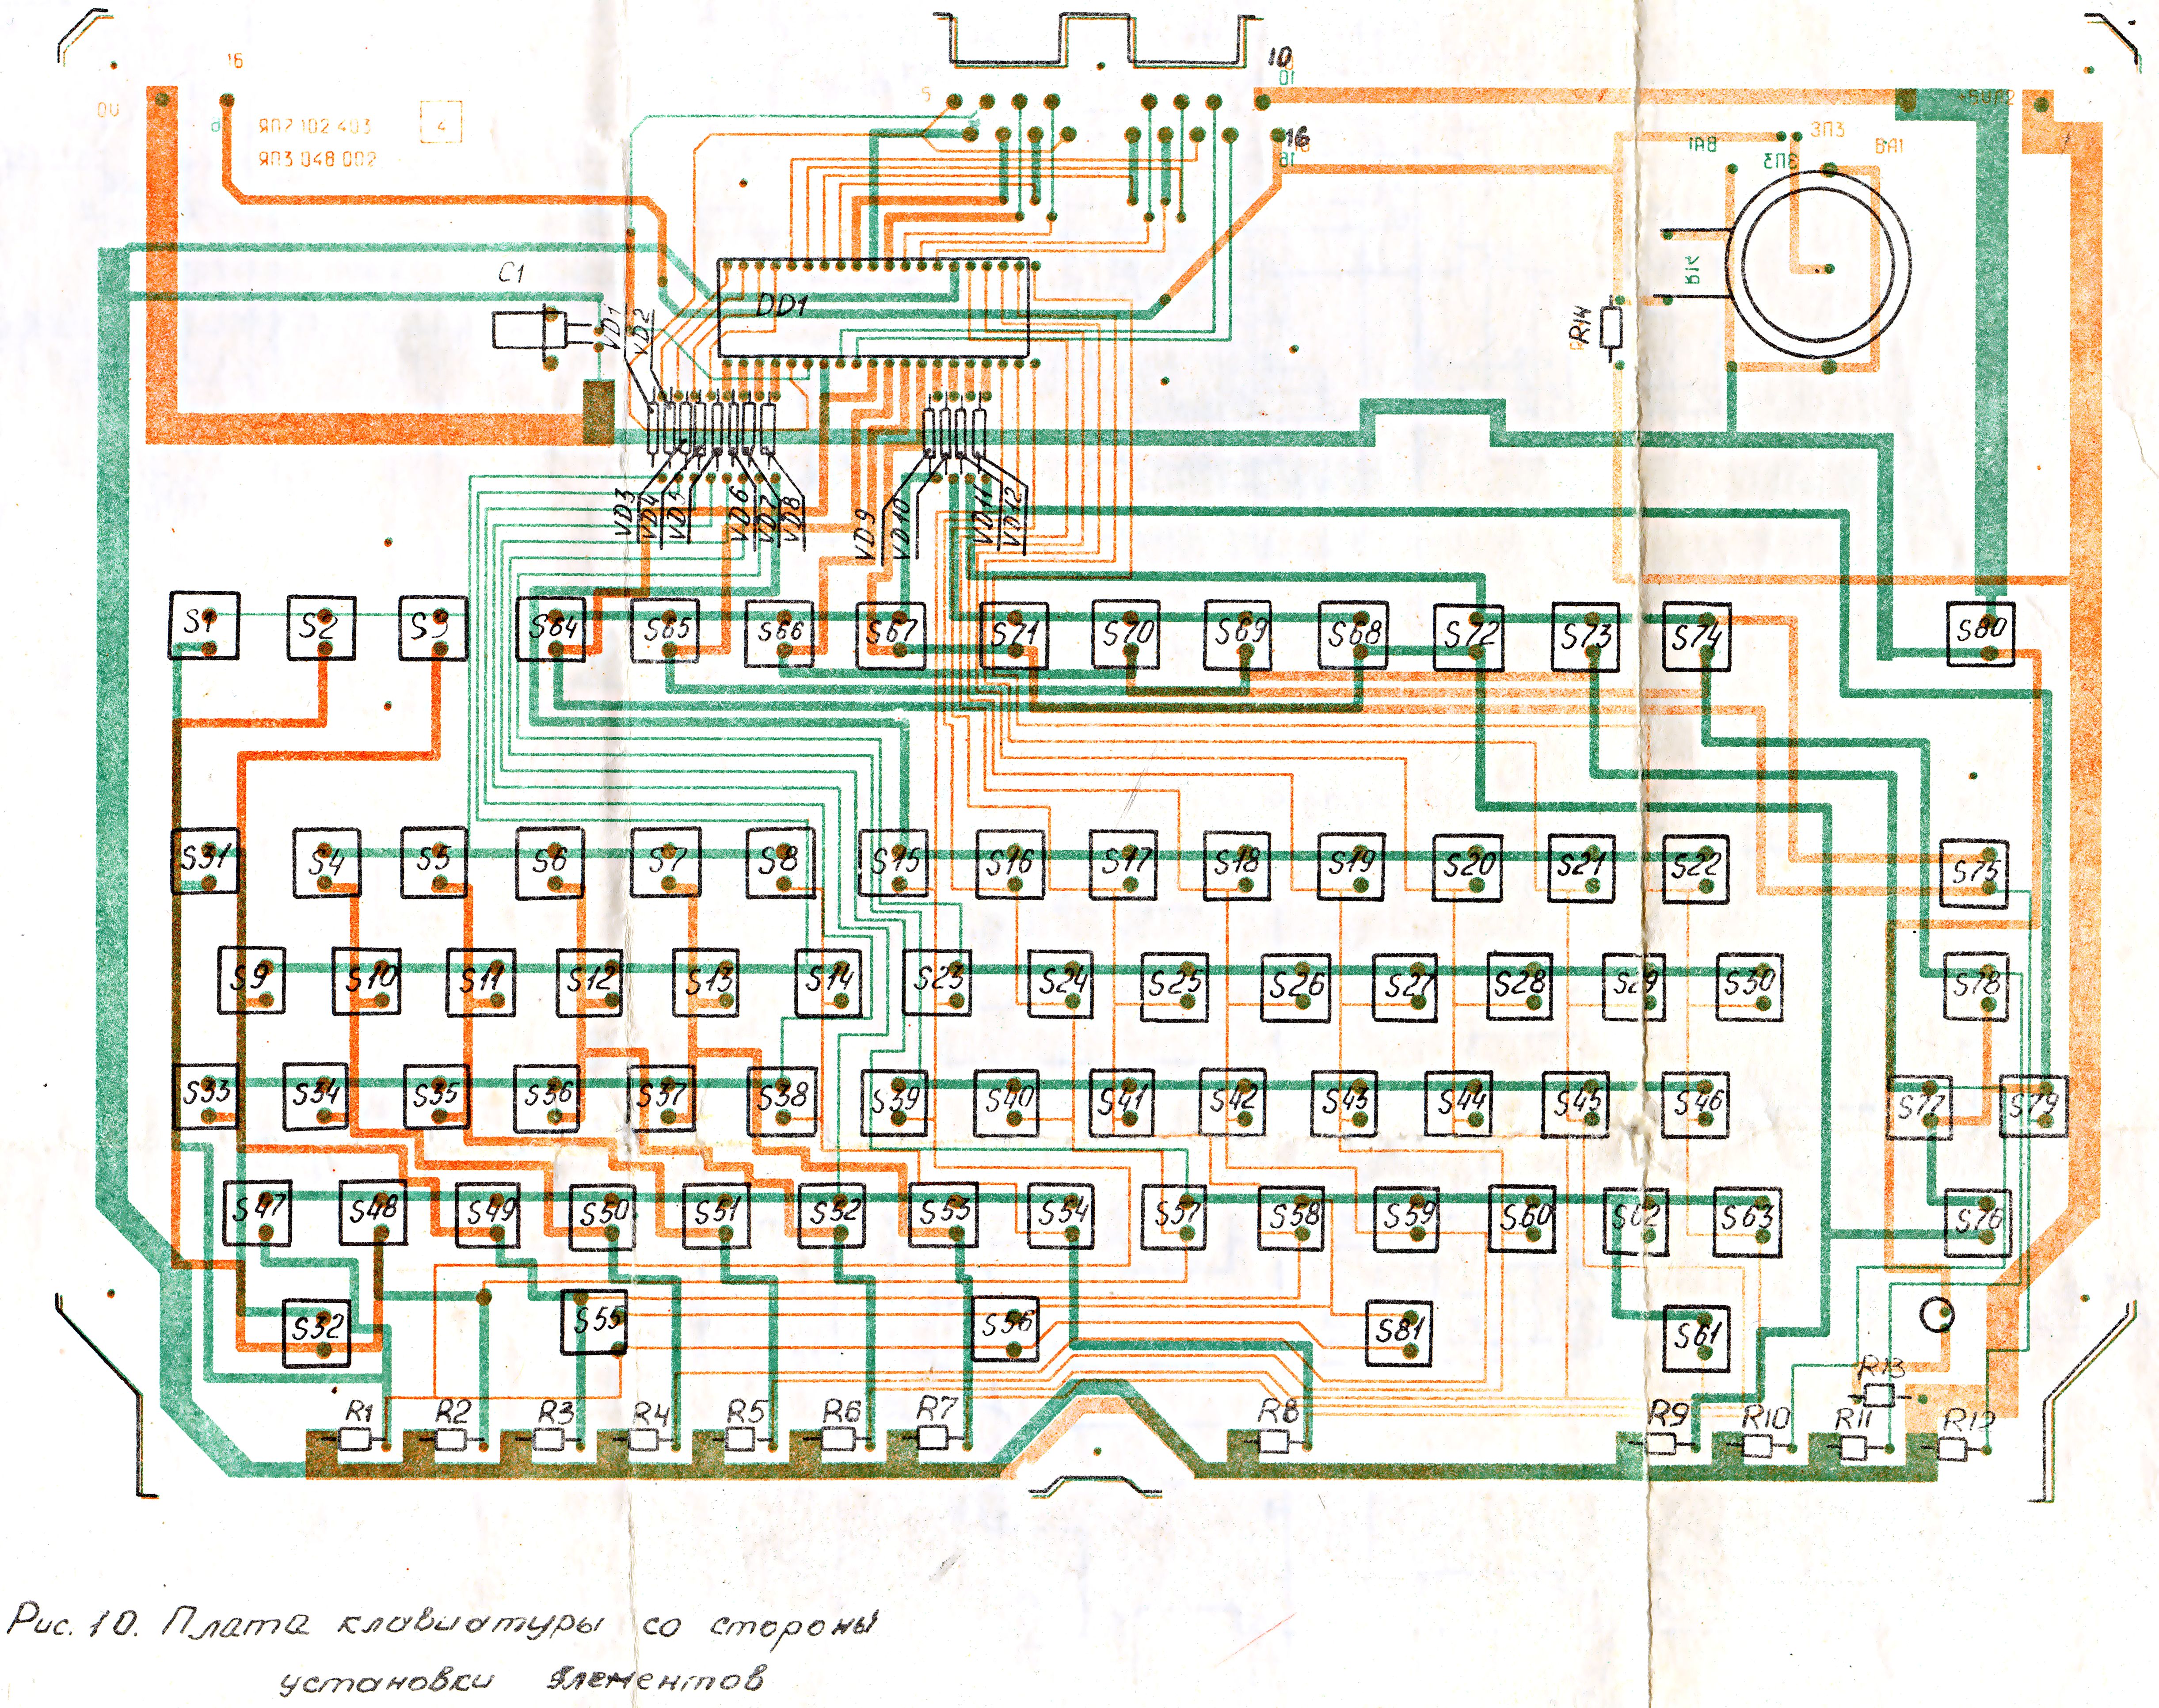 10
16
5
10
0V
ЯП7 102 403
4
ЯП3 048 002
16
3П3
1A8
ЕП3
BA1
C1
DD1
VD1
VD2
R14
VD3
VD4
VD5
VD6
VD7
VD8
VD9
VD10
VD11
VD12
S1 S2 S3 S64 S65 S66 S67 S71 S70 S69 S68 S72 S73 S74 S80
S31 S4 S5 S6 S7 S8 S15 S16 S17 S18 S19 S20 S21 S22 S75
S9 S10 S11 S12 S13 S14 S23 S24 S25 S26 S27 S28 S29 S30 S78
S33 S34 S35 S36 S37 S38 S39 S40 S41 S42 S43 S44 S45 S46 S77 S79
S47 S48 S49 S50 S51 S52 S53 S54 S57 S58 S59 S60 S62 S63 S76
S32 S55 S56 S81 S61
R13
R1 R2 R3 R4 R5 R6 R7 R8 R9 R10 R11 R12
Рис. 10. Плата клавиатуры со стороны
установки элементов